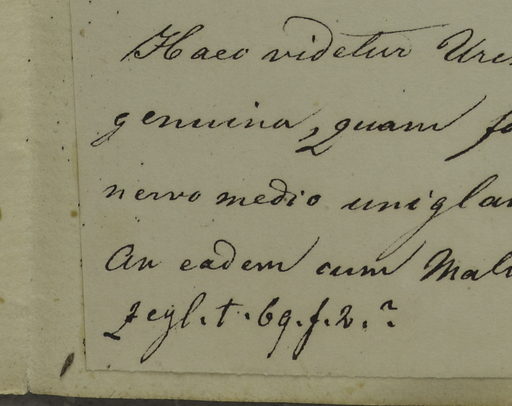 Haec videtur Ure
genuina, quam fo
nervo medio uniglan
An eadem cum Mal
zeyl. t. 69. f. 2.?